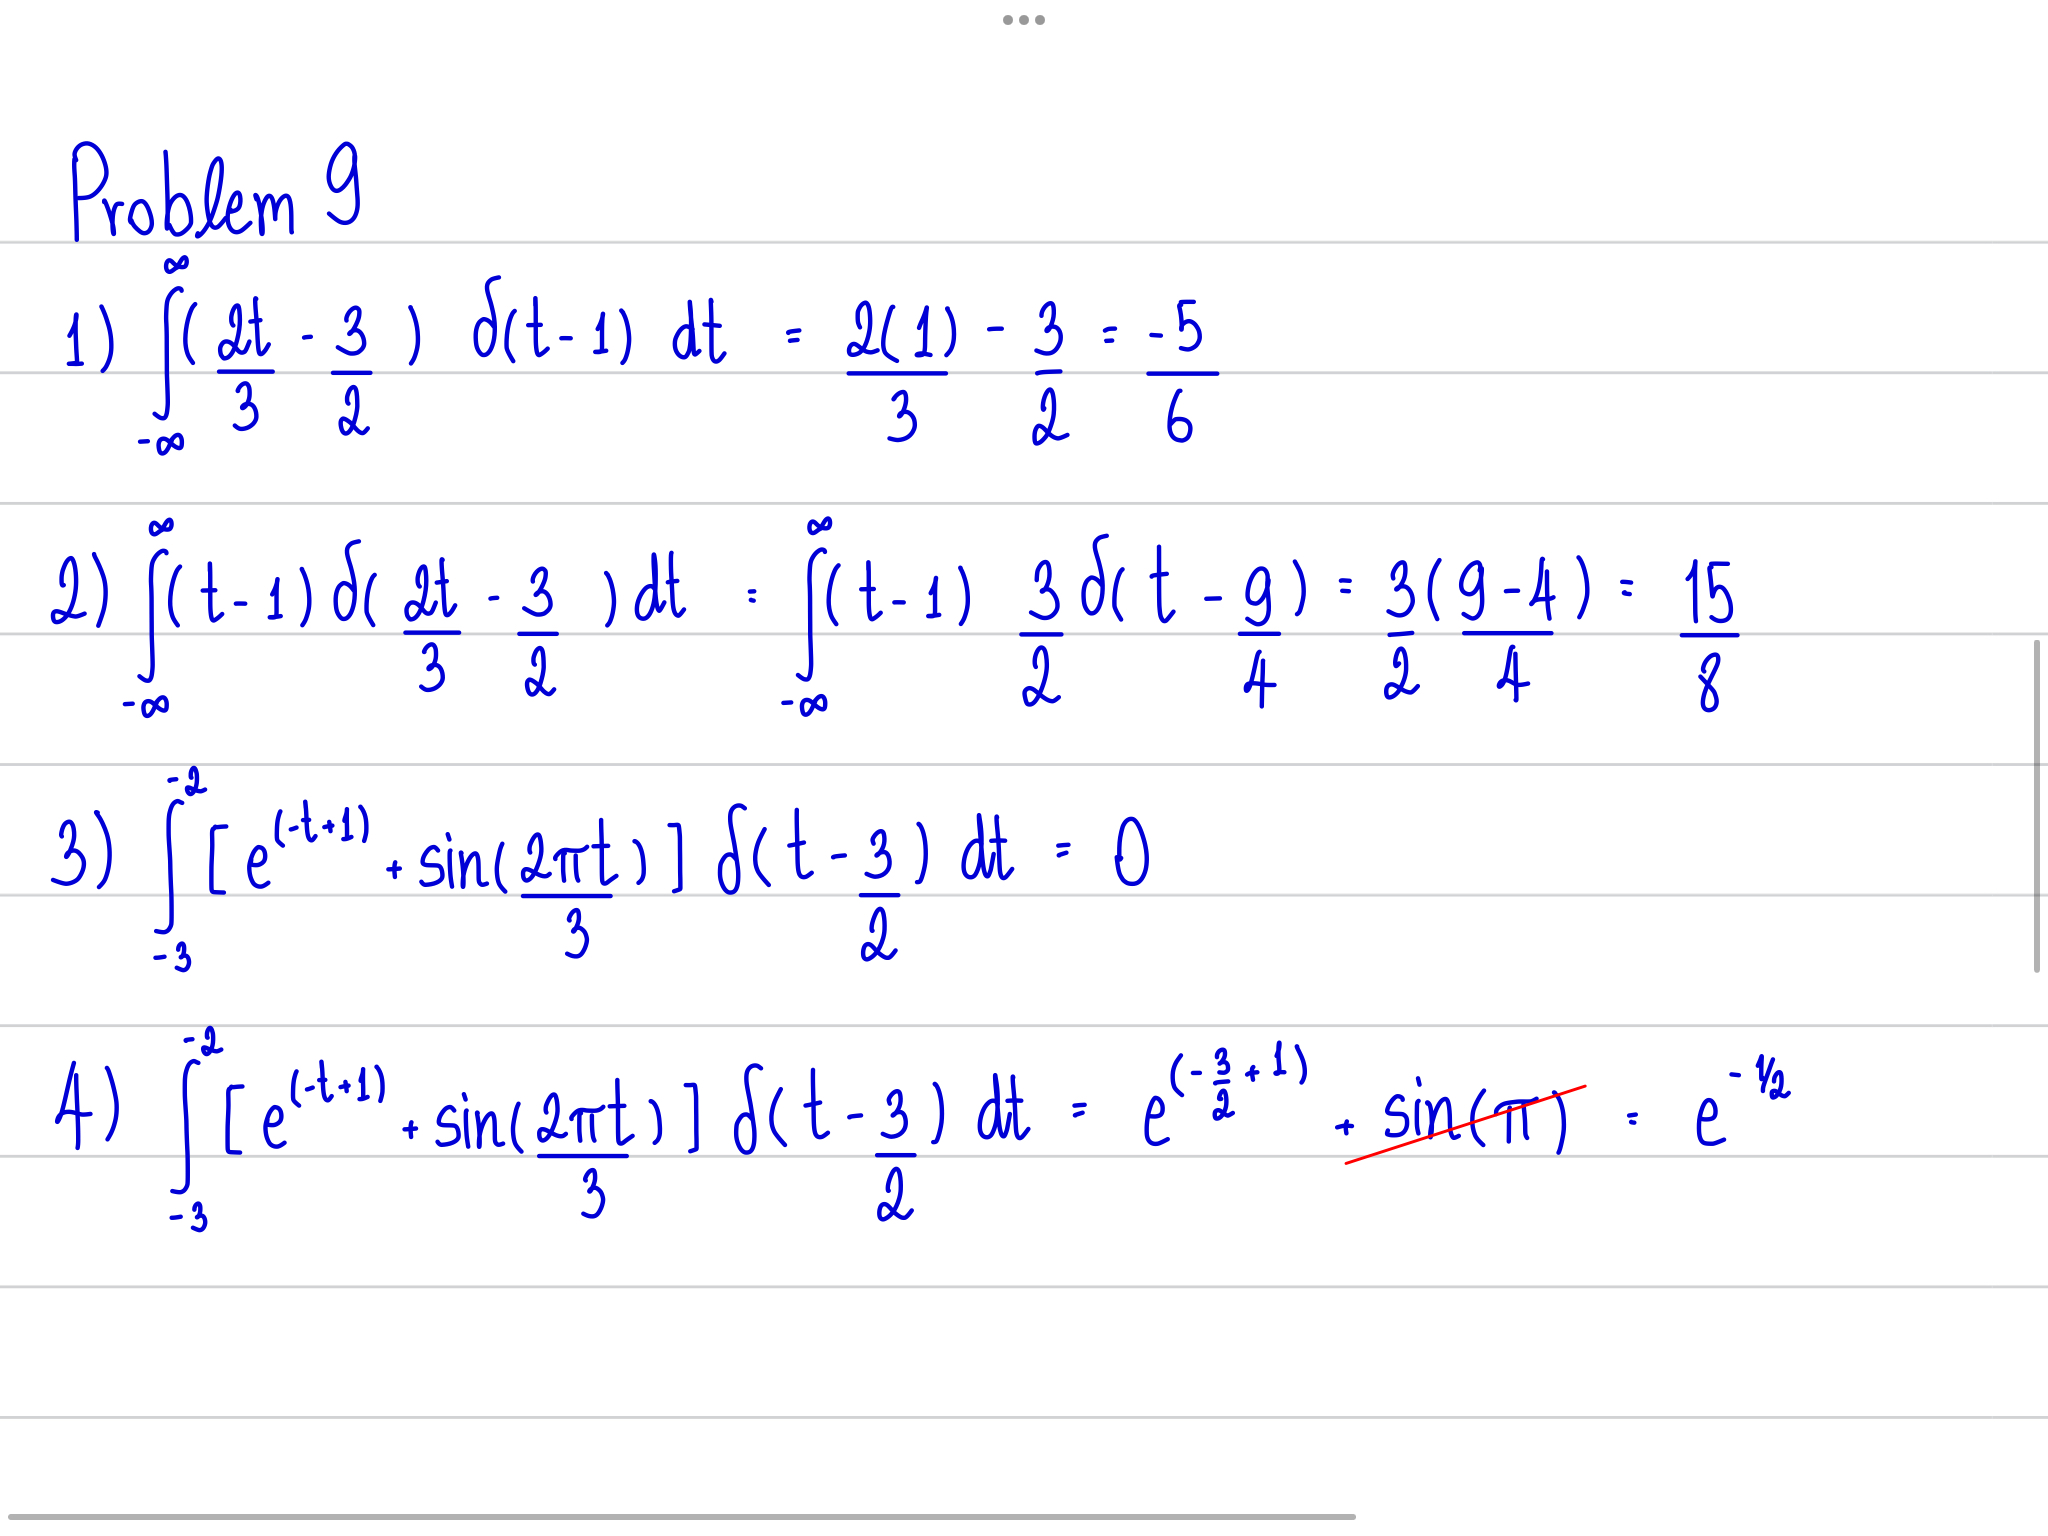 Problem 9
1) ∫_{-∞}^{∞} (2t/3 - 3/2) δ(t-1) dt = 2(1)/3 - 3/2 = -5/6
2) ∫_{-∞}^{∞} (t-1) δ(2t/3 - 3/2) dt = ∫_{-∞}^{∞} (t-1) 3/2 δ(t - 9/4) = 3/2 (9-4)/4 = 15/8
3) ∫_{-3}^{-2} [e^{(-t+1)} + sin(2πt/3)] δ(t - 3/2) dt = 0
4) ∫_{-3}^{-2} [e^{(-t+1)} + sin(2πt/3)] δ(t - 3/2) dt = e^{(-3/2 + 1)} + sin(π) = e^{-1/2}